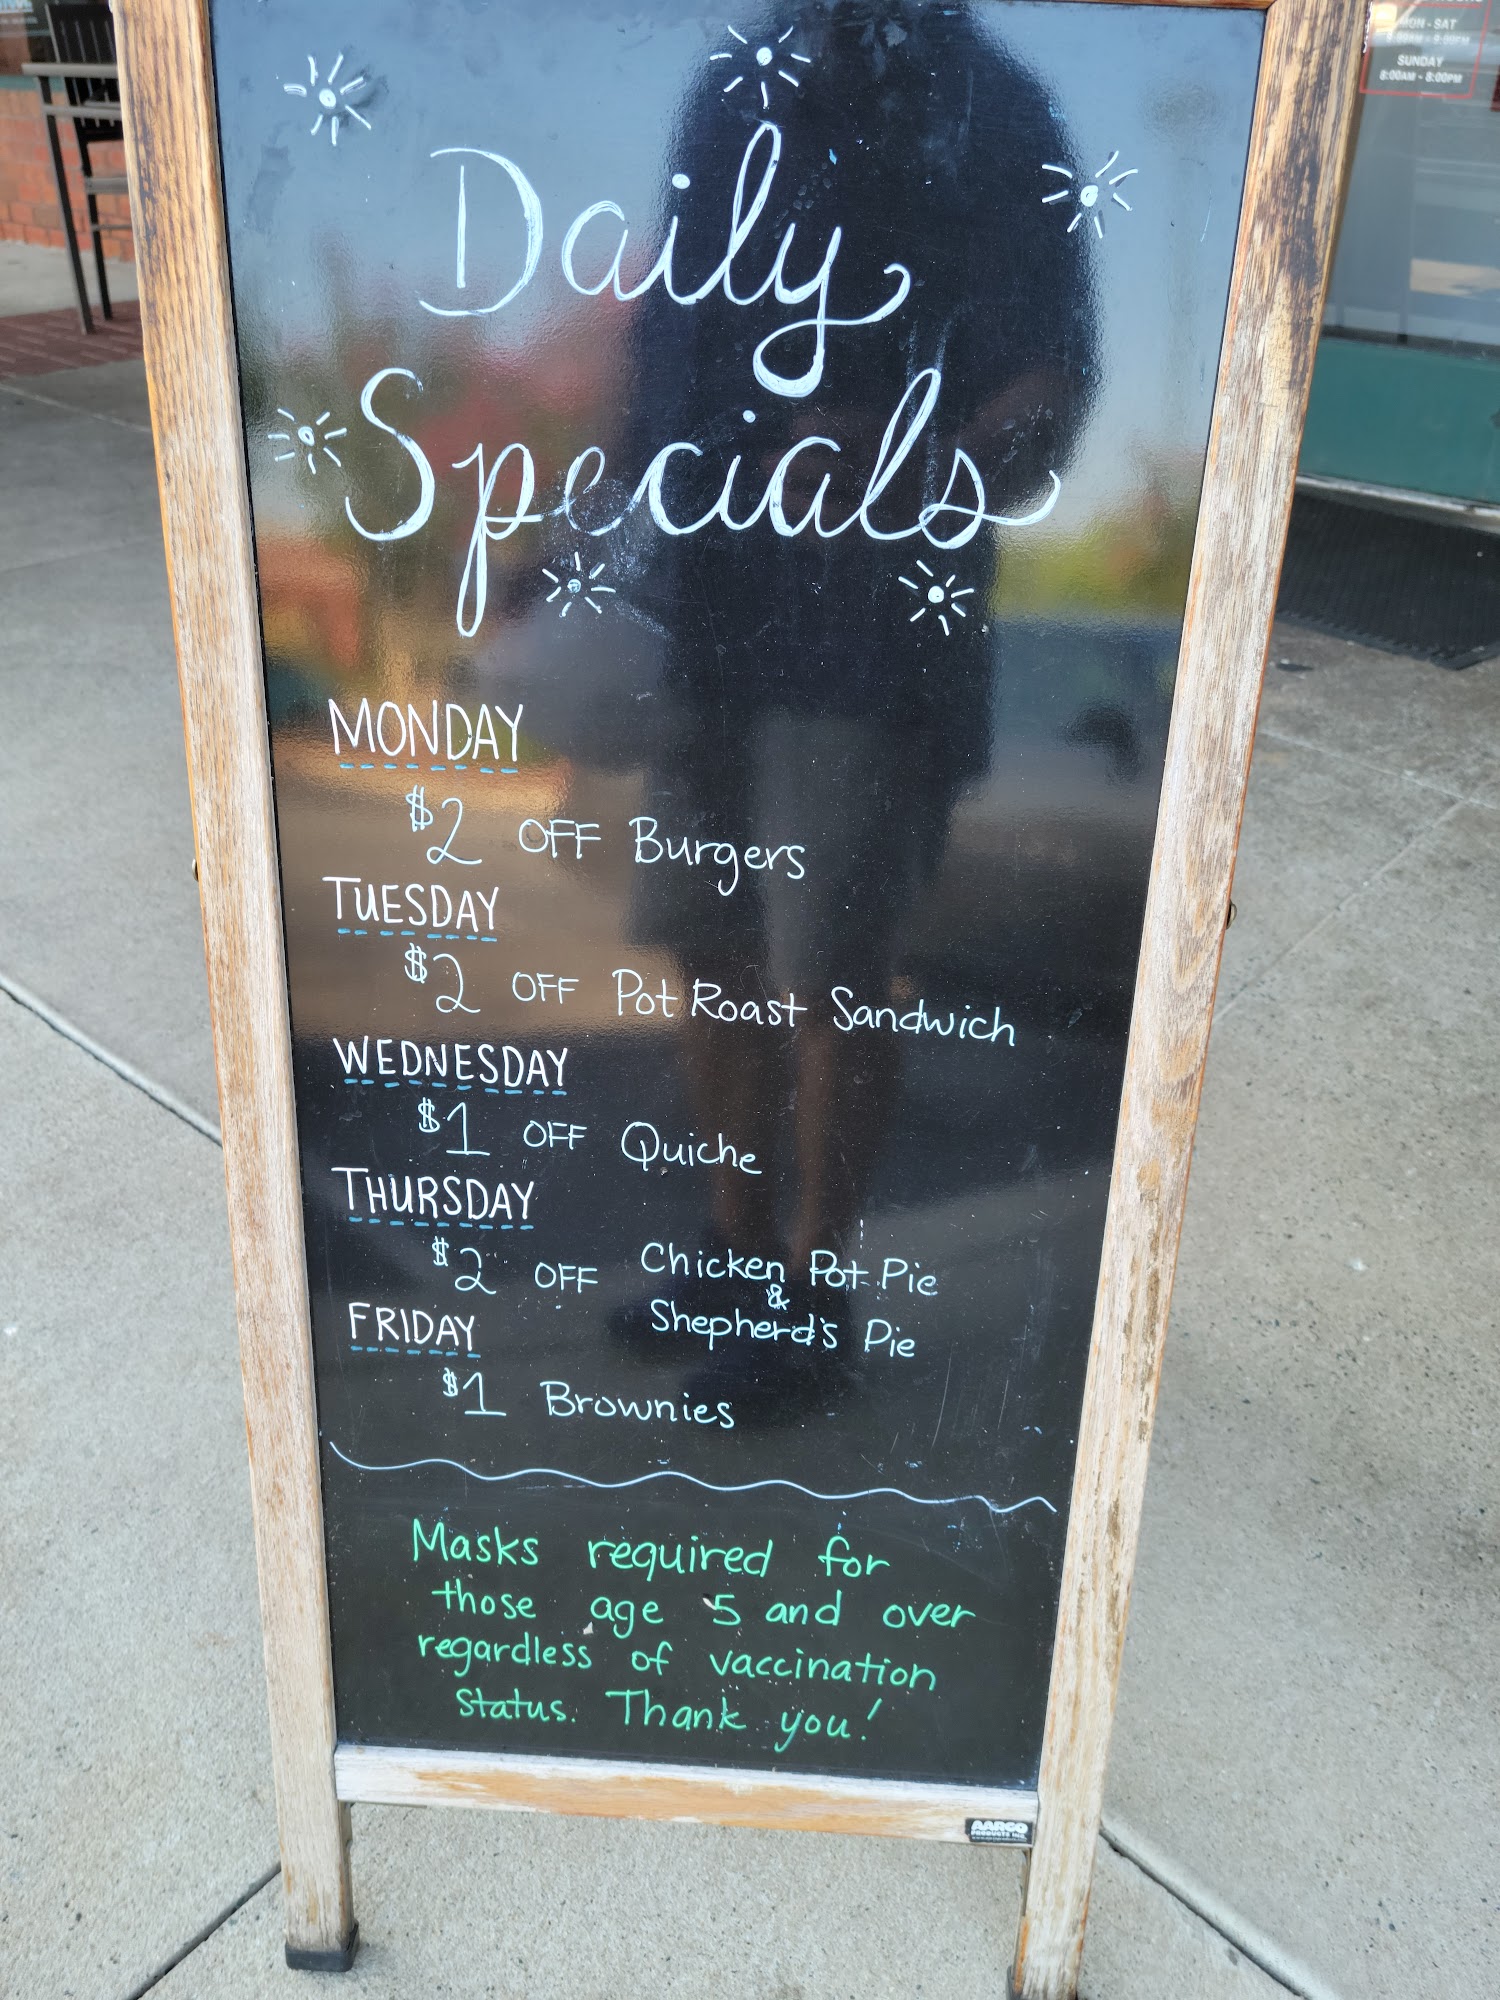 MON - SAT
SUNDAY
8:00AM - 8:00PM
Daily
Specials
MONDAY
$2 OFF Burgers
TUESDAY
$2 OFF Pot Roast Sandwich
WEDNESDAY
$1 OFF Quiche
THURSDAY
$2 OFF Chicken Pot Pie
&
Shepherd's Pie
FRIDAY
$1 Brownies
Masks required for
those age 5 and over
regardless of vaccination
status. Thank you!
AARCO
PRODUCTS INC.